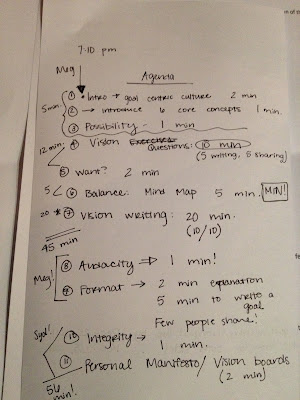 7:10 pm
Meg
Agenda
5 min. ① • Intro + goal centric culture 2 min
② → introduce 6 core concepts 1 min.
③ Possibility - 1 min
12 min: ④ Vision Exercises Questions: 10 min
(5 writing, 5 sharing)
⑤ want? 2 min
5 ⑥ Balance: Mind Map 5 min. MIN!
20 * ⑦ Vision writing: 20 min.
(10/10)
45 min
Meg! ⑧ Audacity → 1 min!
⑨ Format → 2 min explanation
5 min to write a goal
Few people share!
⑩ Integrity → 1 min.
⑪ Personal Manifesto / Vision boards
(2 min)
56 min!